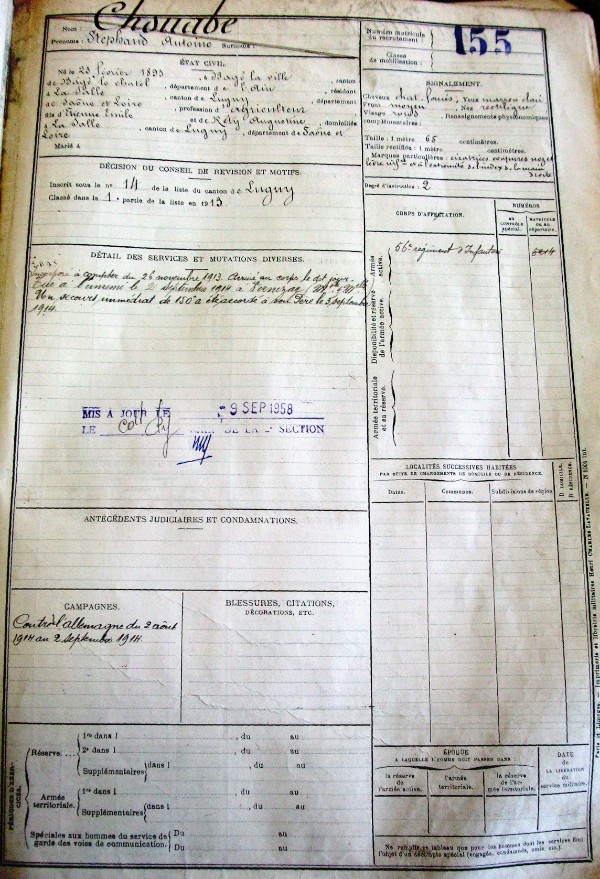 Nom : Chouabe
Prénoms : Stephand Antoine Surnoms :
Numéro matricule du recrutement : 155
Classe de mobilisation :
ÉTAT CIVIL.
Né le 23 février 1893, à Bagé la ville, canton
de Bagé le chatel, département de l'Ain, résidant
à La Salle, canton de Lugny, département
de Saône et Loire, profession d'agriculteur
fils d'Etienne Emile et de Rety Augustine, domiciliés
à La Salle, canton de Lugny, département de Saône et
Loire
Marié à
DÉCISION DU CONSEIL DE REVISION ET MOTIFS.
Inscrit sous le no 14 de la liste du canton de Lugny
Classé dans la 1e partie de la liste en 1913
DÉTAIL DES SERVICES ET MUTATIONS DIVERSES.
Incorporé à compter du 26 novembre 1913. Arrivé au corps le dit jour.
Tué à l'ennemi le 2 septembre 1914 à
Un secours immédiat de 150f a été accordé à son Père le 3 septembre
1914.
MIS A JOUR LE 9 SEP 1958
LE DE LA SECTION
ANTÉCÉDENTS JUDICIAIRES ET CONDAMNATIONS.
CAMPAGNES.
Contre l'allemagne du 2 août
1914 au 2 septembre 1914.
BLESSURES, CITATIONS,
DÉCORATIONS, ETC.
PÉRIODES D'EXERCICES.
Réserve....
1re dans l , du au
2e dans l , du au
Supplémentaires dans l , du au
Armée territoriale.
1re dans l , du au
Supplémentaires dans l , du au
Spéciales aux hommes du service de garde des voies de communication.
Du au
Du au
SIGNALEMENT.
Cheveux chat. foncés, Yeux marron clair
Front moyen, Nez rectiligne
Visage rond, Renseignements physionomiques
complémentaires :
Taille : 1 mètre 68 centimètres.
Taille rectifiée : 1 mètre centimètres.
Marques particulières : cicatrices coupures nez et
lèvre infre et à l'extrémité de l'index de la main
droite
Degré d'instruction : 2
CORPS D'AFFECTATION.
NUMÉROS
au contrôle spécial.
MATRICULE ou au répertoire.
Armée active.
56e régiment d'Infanterie
Disponibilité et réserve de l'armée active.
Armée territoriale et sa réserve.
LOCALITÉS SUCCESSIVES HABITÉES
PAR SUITE DE CHANGEMENTS DE DOMICILE OU DE RÉSIDENCE.
Dates.
Communes.
Subdivisions de région
D DOMICILE.
R RÉSIDENCE.
ÉPOQUE
A LAQUELLE L'HOMME DOIT PASSER DANS :
la réserve de l'armée active.
l'armée territoriale.
la réserve de l'armée territoriale.
DATE
de LA LIBÉRATION du service militaire.
Ne remplir ce tableau que pour les hommes dont les services font
l'objet d'un décompte spécial (engagés, condamnés, omis, etc.).
Paris et Limoges. — Imprimerie et librairie militaires Henri CHARLES-LAVAUZELLE. —